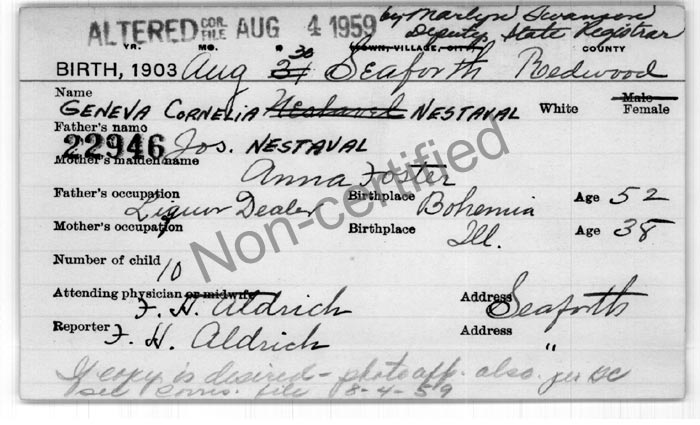 ALTERED COR. FILE AUG 4 1959 by Marlyn Swanson
Deputy State Registrar
YR. MO. D TOWN, VILLAGE, CITY COUNTY
BIRTH, 1903 Aug 31 30 Seaforth Redwood
Name
GENEVA CORNELIA NESTAVAL White Male Female
Father's name
22946 Jos. NESTAVAL
Mother's maiden name
Anna Foster
Father's occupation Birthplace Age 52
Liquor Dealer Bohemia
Mother's occupation Birthplace Ill. Age 38
Number of child 10
Attending physician or midwife Address Seaforth
F. H. Aldrich
Reporter Address "
F. H. Aldrich
If copy is desired - photo app. also. per
see Corris. file 8-4-59
Non-certified